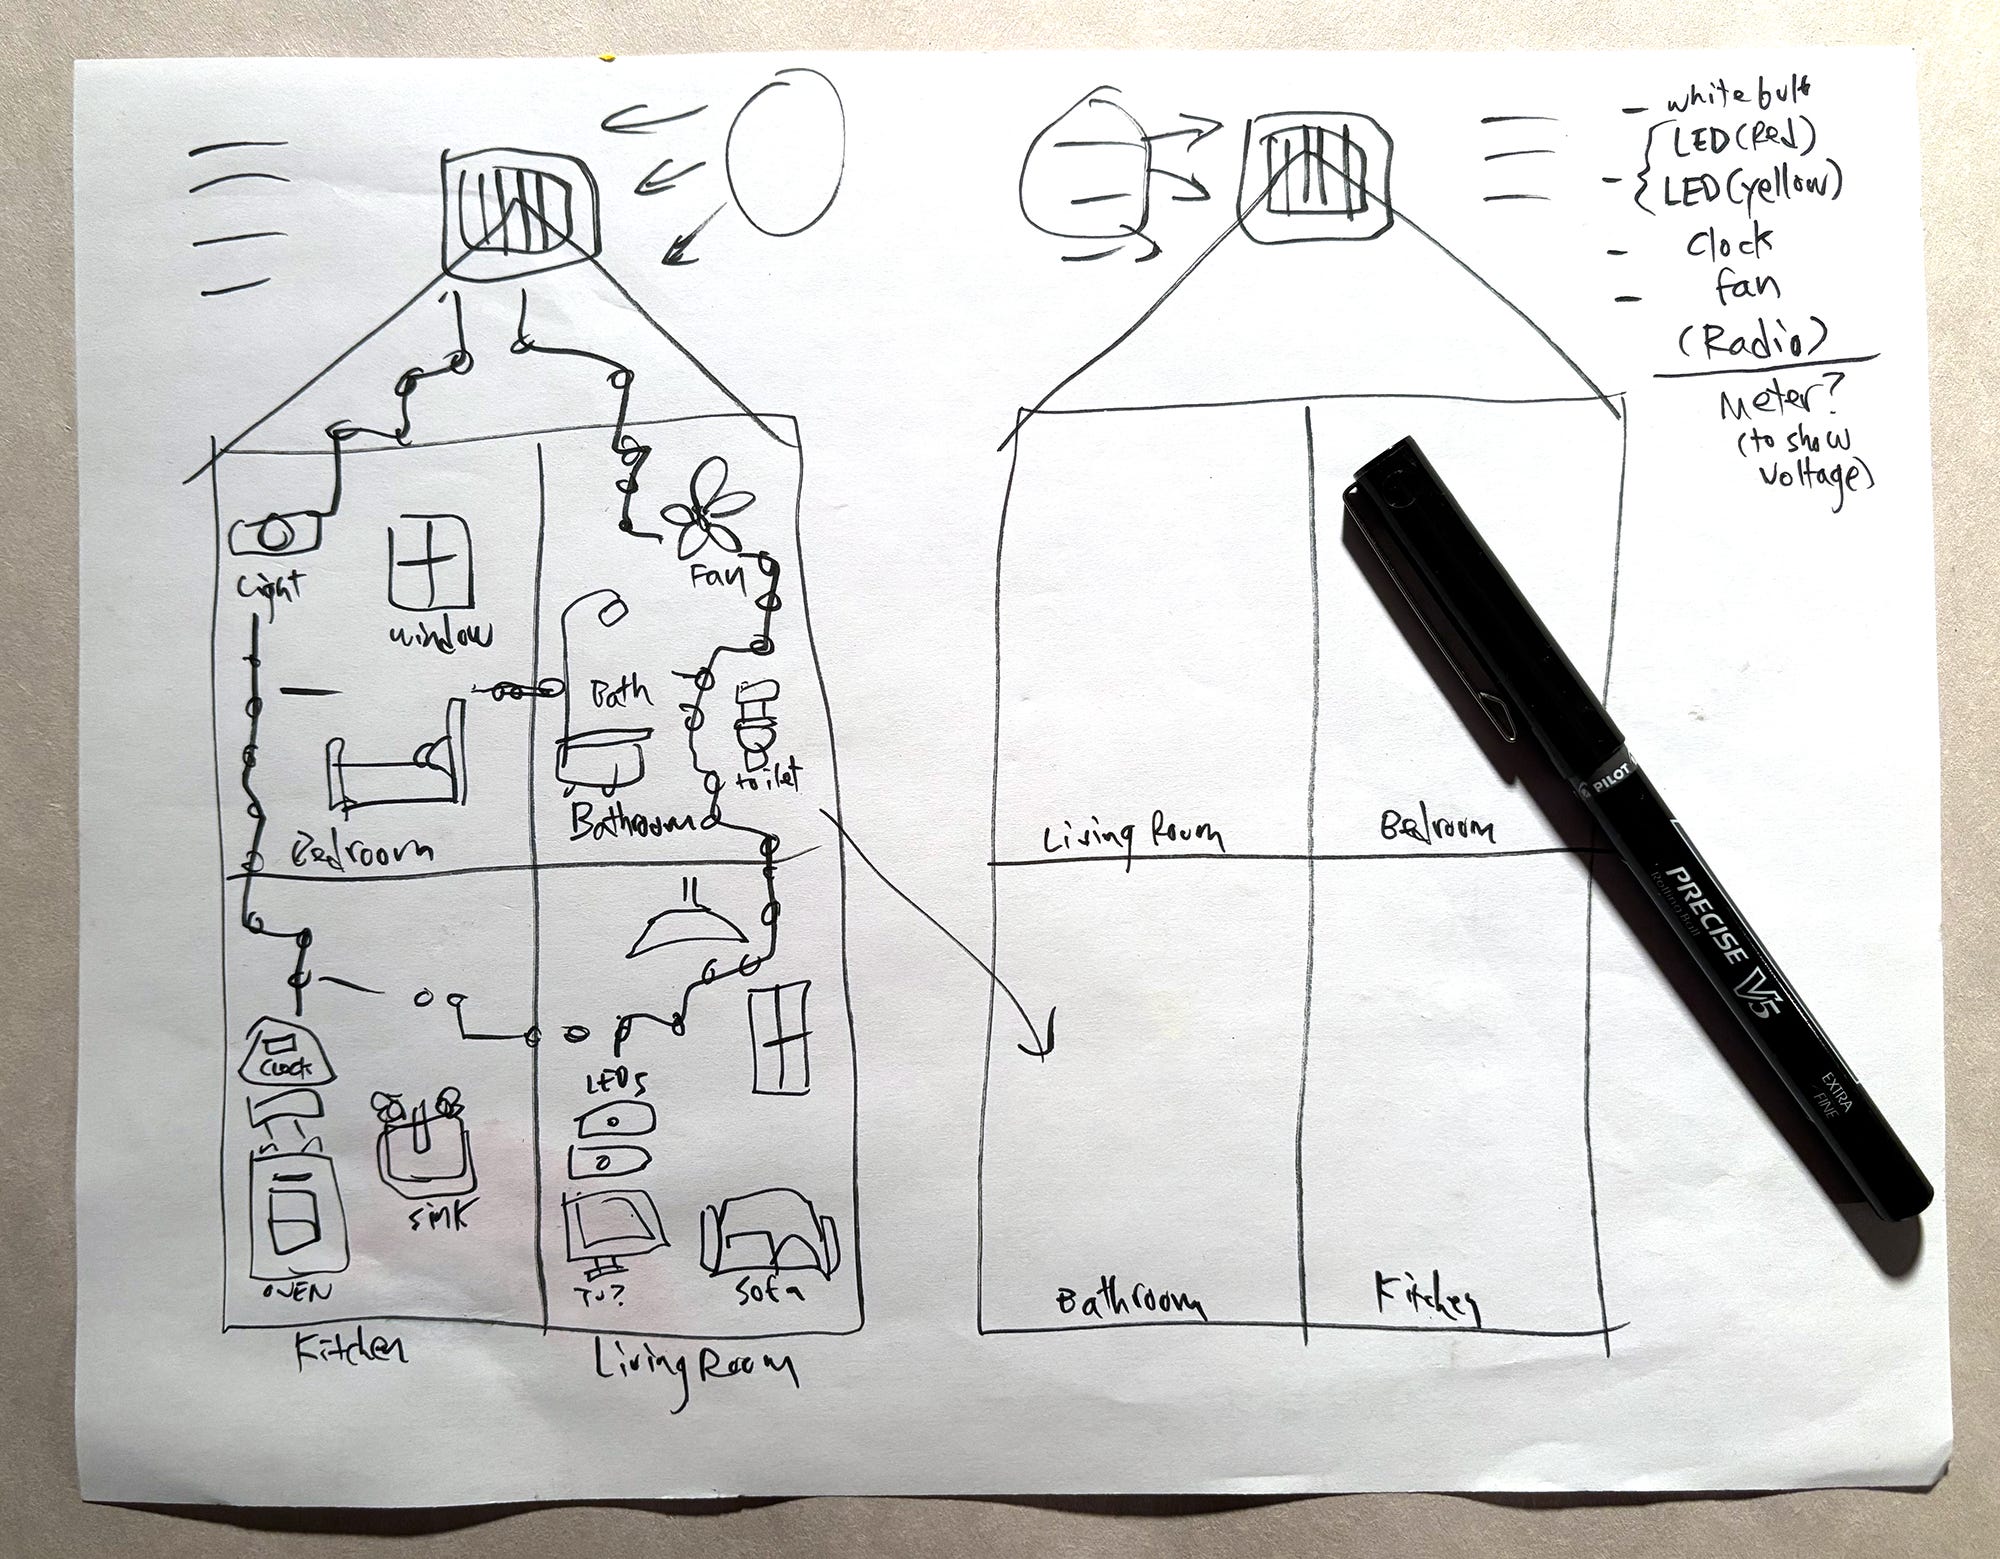 Light
window
Fan
Bath
toilet
Bedroom
Bathroom
CLOCK
LEDs
OVEN
SINK
TV?
Sofa
Kitchen
Living Room
Living Room
Bedroom
Bathroom
Kitchen
- white bulb
LED (Red)
- LED (yellow)
- Clock
- fan
(Radio)
Meter?
(to show
voltage)
PILOT
PRECISE V5
Rolling Ball
EXTRA
FINE